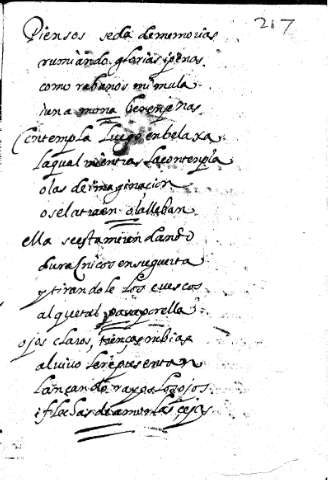 217
Piensos se da de memorias
rumiando glorias i penas
como rabanos mi mula
i una mona berengenas
Contempla luego en belaxa
la qual mientras la contempla
olas de imaginacion
o se la traen o la llevan
ella se esta mirando
duraznicos en su guerta
y tirandole los cuescos
al que tal pasa por ella
ojos claros, trenças rubias
al vivo le representan
lançando rayos los ojos
i flechas de amor las cejas